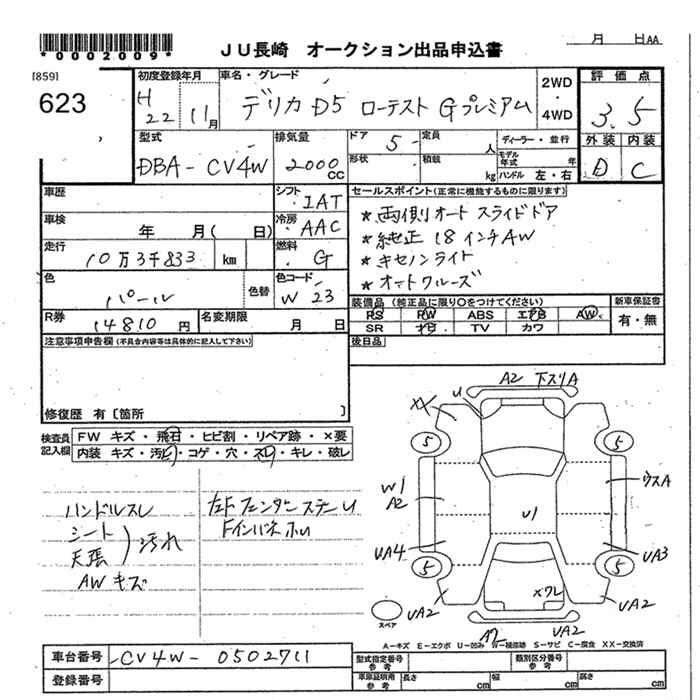 *0002009*
JU長崎 オークション出品申込書
月 日AA
[859]
623
初度登録年月
H22 11月
車名・グレード
デリカ D5 ローデスト Gプレミアム
2WD・4WD
評価点
3.5
外装 内装
D C
型式
DBA-CV4W
排気量
2000cc
ドア
5
形状
定員
人
積載
kg
ディーラー・並行
モデル年式 年
ハンドル 左・右
車歴
シフト
IAT
車検
年 月( 日)
冷房
AAC
走行
10万3千833 km
燃料
G
色
パール
色替
色コード
W23
R券
14810円
名変期限
月 日
セールスポイント(正常に機能するものに限ります)
*両側オートスライドドア
*純正18インチAW
*キセノンライト
*オートクルーズ
装備品(純正品に限り○をつけてください)
PS PW ABS エアB AW
SR ナビ TV カワ
新車保証書
有・無
後日品
注意事項申告欄(不具合内容等は具体的に記入して下さい)
修復歴 有〔箇所 〕
検査員記入欄
FW キズ・飛石・ヒビ割・リペア跡・×要
内装 キズ・汚れ・コゲ・穴・スレ・キレ・破レ
ハンドルスレ
シート
天張
汚れ
AWキズ
左Fフェンダーステー U
Fインパネ ホU
A2 下スリA
U
XX
5
5
W1
A2
ウスA
U1
UA4
UA3
5
5
×ワレ
UA2
UA2
A2
UA2
スペア
A-キズ E-エクボ U-凹み W-補修跡 S-サビ C-腐食 XX-交換済
車台番号
CV4W-0502711
登録番号
型式指定番号 参考
類別区分番号 参考
車庫証明用 参考
長さ cm
幅 cm
高さ cm